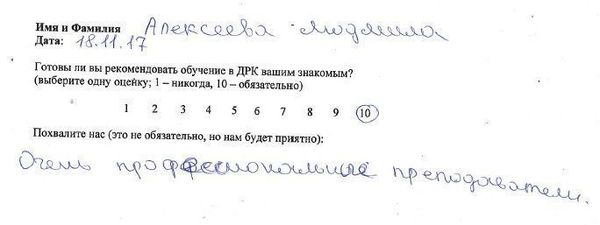 Имя и Фамилия Алексеева Людмила
Дата: 18.11.17
Готовы ли вы рекомендовать обучение в ДРК вашим знакомым?
(выберите одну оценку; 1 – никогда, 10 – обязательно)
1 2 3 4 5 6 7 8 9 10
Похвалите нас (это не обязательно, но нам будет приятно):
Очень профессиональные преподаватели.